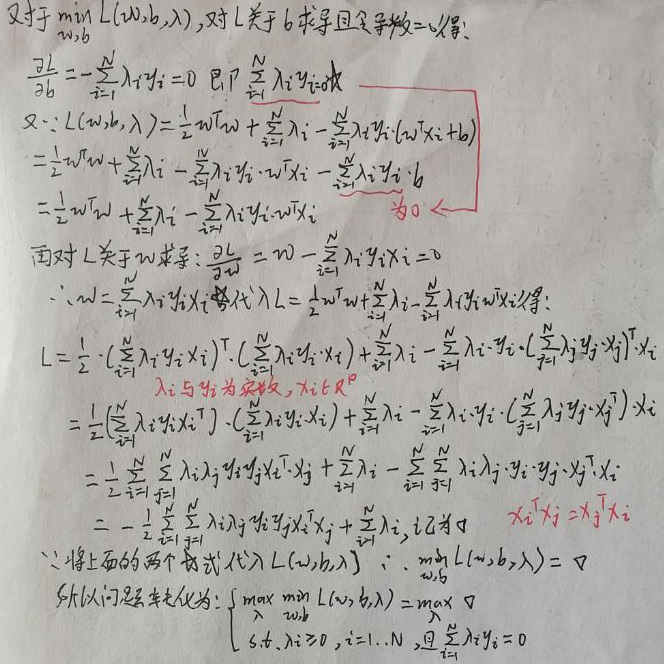 又对于 min_{w,b} L(w,b,λ), 对L关于b求导且令导数=0得:
∂L/∂b = -∑_{i=1}^{N} λ_i y_i = 0 即 ∑_{i=1}^{N} λ_i y_i = 0
又∵ L(w,b,λ) = 1/2 w^T w + ∑_{i=1}^{N} λ_i - ∑_{i=1}^{N} λ_i y_i·(w^T x_i + b)
= 1/2 w^T w + ∑_{i=1}^{N} λ_i - ∑_{i=1}^{N} λ_i y_i·w^T x_i - ∑_{i=1}^{N} λ_i y_i·b
为0
= 1/2 w^T w + ∑_{i=1}^{N} λ_i - ∑_{i=1}^{N} λ_i y_i·w^T x_i
再对L关于w求导: ∂L/∂w = w - ∑_{i=1}^{N} λ_i y_i x_i = 0
∴ w = ∑_{i=1}^{N} λ_i y_i x_i 代入 L = 1/2 w^T w + ∑_{i=1}^{N} λ_i - ∑_{i=1}^{N} λ_i y_i w^T x_i 得:
L = 1/2·(∑_{i=1}^{N} λ_i y_i x_i)^T·(∑_{i=1}^{N} λ_i y_i·x_i) + ∑_{i=1}^{N} λ_i - ∑_{i=1}^{N} λ_i·y_i·(∑_{j=1}^{N} λ_j y_j·x_j)^T·x_i
λ_i与y_i为实数, x_i∈R^p
= 1/2(∑_{i=1}^{N} λ_i y_i x_i^T)·(∑_{i=1}^{N} λ_i y_i·x_i) + ∑_{i=1}^{N} λ_i - ∑_{i=1}^{N} λ_i·y_i·(∑_{j=1}^{N} λ_j y_j·x_j^T)·x_i
= 1/2 ∑_{i=1}^{N} ∑_{j=1}^{N} λ_i λ_j y_i y_j x_i^T·x_j + ∑_{i=1}^{N} λ_i - ∑_{i=1}^{N} ∑_{j=1}^{N} λ_i λ_j·y_i·y_j·x_j^T·x_i
= -1/2 ∑_{i=1}^{N} ∑_{j=1}^{N} λ_i λ_j y_i y_j x_i^T x_j + ∑_{i=1}^{N} λ_i, 记为∇
x_i^T x_j = x_j^T x_i
∵将上面的两个式代入L(w,b,λ) ∴ min_{w,b} L(w,b,λ) = ∇
所以问题转化为: { max_λ min_{w,b} L(w,b,λ) = max_λ ∇
s.t. λ_i ≥ 0, i=1..N, 且 ∑_{i=1}^{N} λ_i y_i = 0